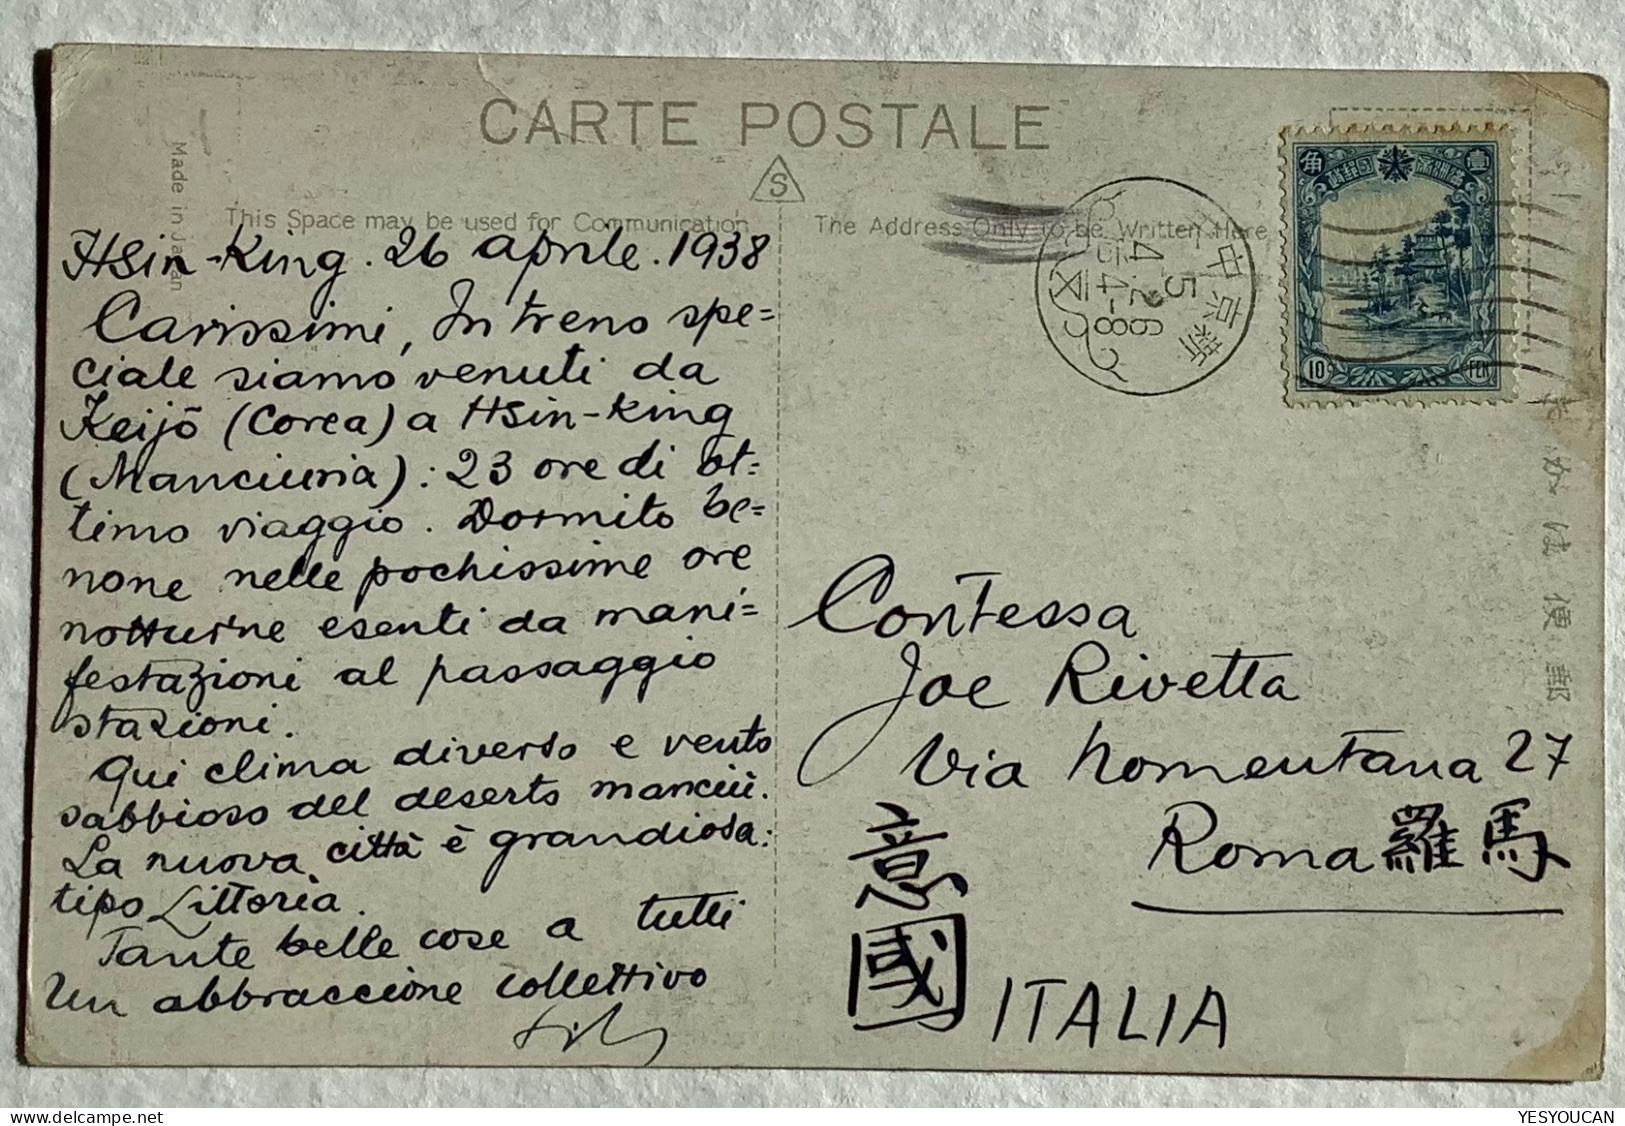 CARTE POSTALE
S
This Space may be used for Communication
The Address Only to be Written Here
Made in Japan
Hsin-King. 26 aprile. 1938
Carissimi, In treno spe=
ciale siamo venuti da
Keijō (Corea) a Hsin-King
(Manciuria): 23 ore di ot=
timo viaggio. Dormito be=
none nelle pochissime ore
notturne esenti da mani=
festazioni al passaggio
stazioni.
Qui clima diverso e vento
sabbioso del deserto manciù.
La nuova città è grandiosa:
tipo Littoria.
Tante belle cose a tutti
Un abbraccione collettivo
Contessa
Joe Rivetta
Via Nomentana 27
Roma 羅馬
意國
ITALIA
新京中
5
4.26
后4-8
角
壹
10
FEN
便郵
YESYOUCAN